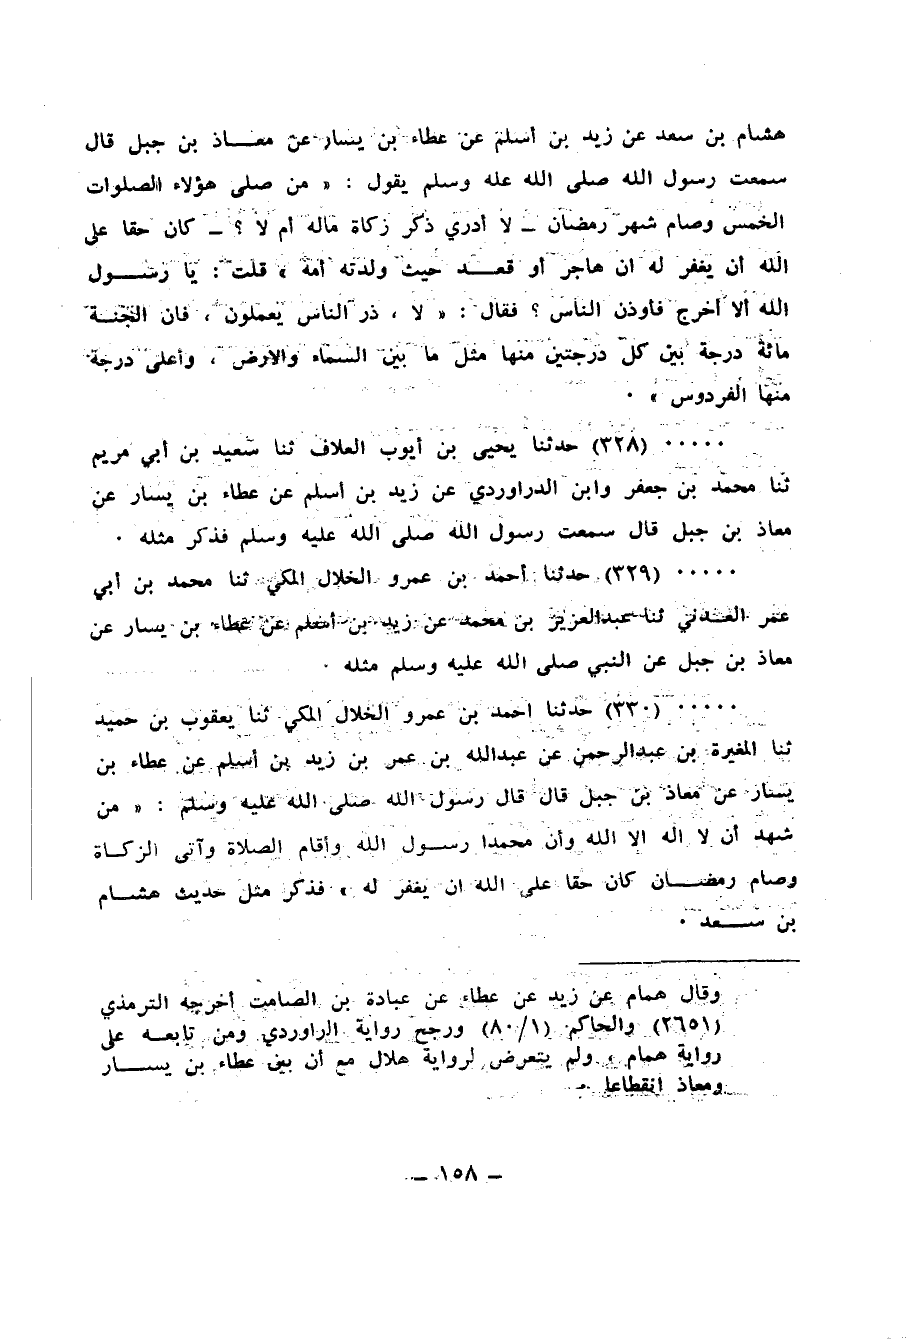 هشام بن سعد عن زيد بن أسلم عن عطاء بن يسار عن معـــاذ بن جبل قال
سمعت رسول الله صلى الله عله وسلم يقول : « من صلى هؤلاء الصلوات
الخمس وصام شهر رمضان ــ لا أدري ذكر زكاة ماله أم لا ؟ ــ كان حقا على
الله أن يغفر له ان هاجر أو قعـــد حيث ولدته أمه » قلت : يا رســـول
الله ألا أخرج فأوذن الناس ؟ فقال : « لا ، ذر الناس يعملون ، فان الجنـــة
مائة درجة بين كل درجتين منها مثل ما بين السماء والارض ، وأعلى درجة
منها الفردوس » ٠
٠٠٠٠٠ (٣٢٨) حدثنا يحيى بن أيوب العلاف ثنا سعيد بن أبي مريم
ثنا محمد بن جعفر وابن الدراوردي عن زيد بن أسلم عن عطاء بن يسار عن
معاذ بن جبل قال سمعت رسول الله صلى الله عليه وسلم فذكر مثله ٠
٠٠٠٠٠ (٣٢٩) حدثنا أحمد بن عمرو الخلال المكي ثنا محمد بن أبي
عمر العـدني ثنا عبدالعزيز بن محمد عن زيد بن أسلم عن عطاء بن يسار عن
معاذ بن جبل عن النبي صلى الله عليه وسلم مثله ٠
٠٠٠٠٠ (٣٣٠) حدثنا احمد بن عمرو الخلال المكي ثنا يعقوب بن حميد
ثنا المغيرة بن عبدالرحمن عن عبدالله بن عمر بن زيد بن أسلم عن عطاء بن
يسار عن معاذ بن جبل قال قال رسول الله صلى الله عليه وسلم : « من
شهد أن لا اله الا الله وأن محمدا رســـول الله وأقام الصلاة وآتى الزكـاة
وصام رمضـــان كان حقا على الله ان يغفر له » فذكر مثل حديث هشـــام
بن ســـعد ٠
وقال همام عن زيد عن عطاء عن عبادة بن الصامت أخرجه الترمذي
(٢٦٥١) والحاكم (٨٠/١) ورجح رواية الراوردي ومن تابعـــه على
رواية همام ، ولم يتعرض لرواية هلال مع أن بين عطاء بن يســـار
ومعاذ انقطاعا ٠
ــ ١٥٨ ــ